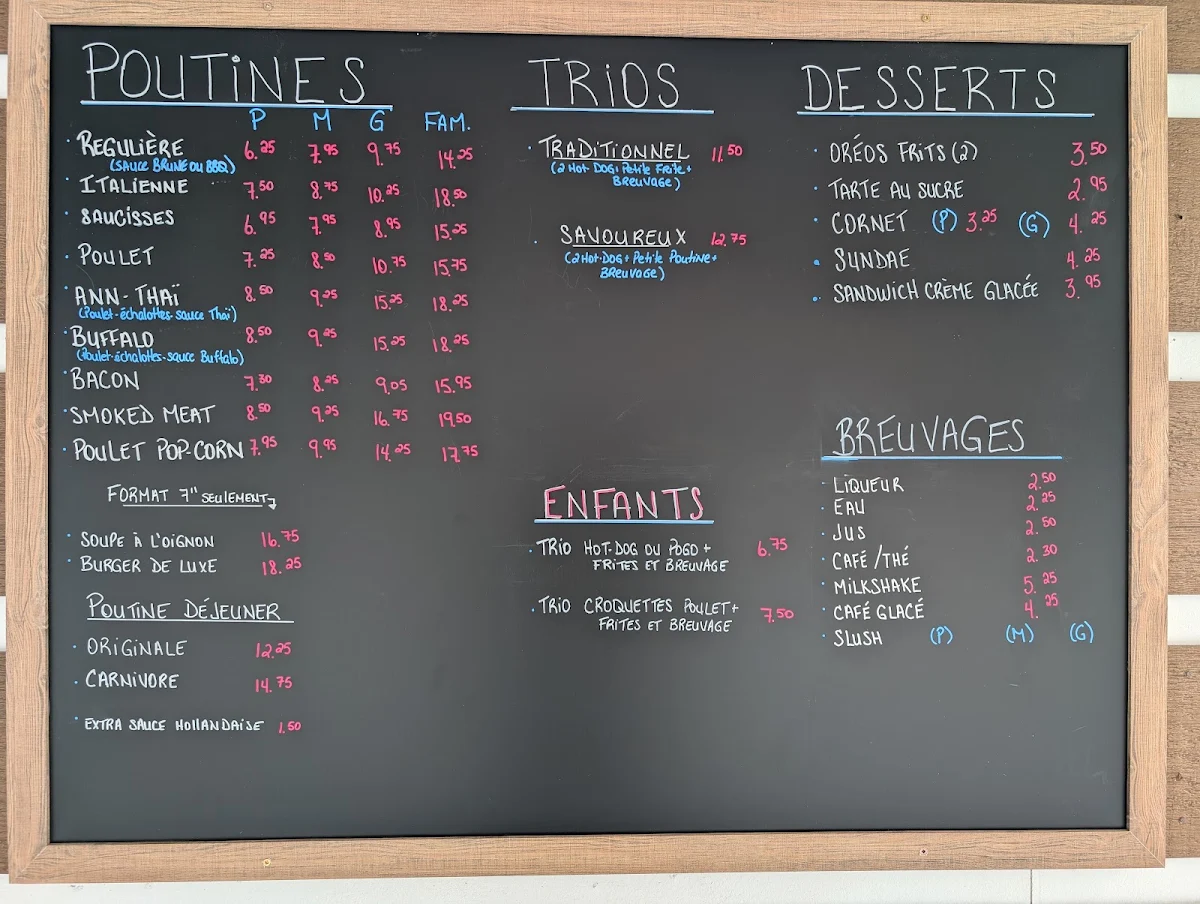 POUTINES
P M G FAM.
· RÉGULIÈRE 6.25 7.95 9.75 14.25
(SAUCE BRUNE OU BBQ)
· ITALIENNE 7.50 8.75 10.25 18.50
· SAUCISSES 6.95 7.95 8.95 15.25
· POULET 7.25 8.50 10.75 15.75
· ANN-THAÏ 8.50 9.25 15.25 18.25
(Poulet-échalottes-sauce Thaï)
· BUFFALO 8.50 9.25 15.25 18.25
(Poulet-échalottes-sauce Buffalo)
· BACON 7.30 8.25 9.05 15.95
· SMOKED MEAT 8.50 9.25 16.75 19.50
· POULET POP-CORN 7.95 9.95 14.25 17.75
FORMAT 7" SEULEMENT
· SOUPE À L'OIGNON 16.75
· BURGER DE LUXE 18.25
POUTINE DÉJEUNER
· ORIGINALE 12.25
· CARNIVORE 14.75
· EXTRA SAUCE HOLLANDAISE 1.50
TRIOS
· TRADITIONNEL 11.50
(2 Hot-DOG+ Petite Frite+
BREUVAGE)
· SAVOUREUX 12.75
(2 Hot-DOG+ Petite Poutine+
BREUVAGE)
ENFANTS
· TRIO HOT-DOG OU POGO +
FRITES ET BREUVAGE 6.75
· TRIO CROQUETTES POULET+
FRITES ET BREUVAGE 7.50
DESSERTS
· ORÉOS FRITS (2) 3.50
· TARTE AU SUCRE 2.95
· CORNET (P) 3.25 (G) 4.25
· SUNDAE 4.25
· SANDWICH CRÈME GLACÉE 3.95
BREUVAGES
· LIQUEUR 2.50
· EAU 2.25
· JUS 2.50
· CAFÉ/THÉ 2.30
· MILKSHAKE 5.25
· CAFÉ GLACÉ 4.25
· SLUSH (P) (M) (G)